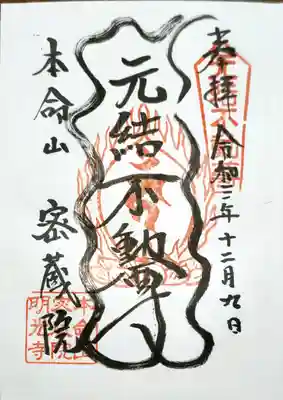 奉拝 令和三年十二月九日
元結不動尊
本命山 密蔵院
本命山
密蔵院
明光寺